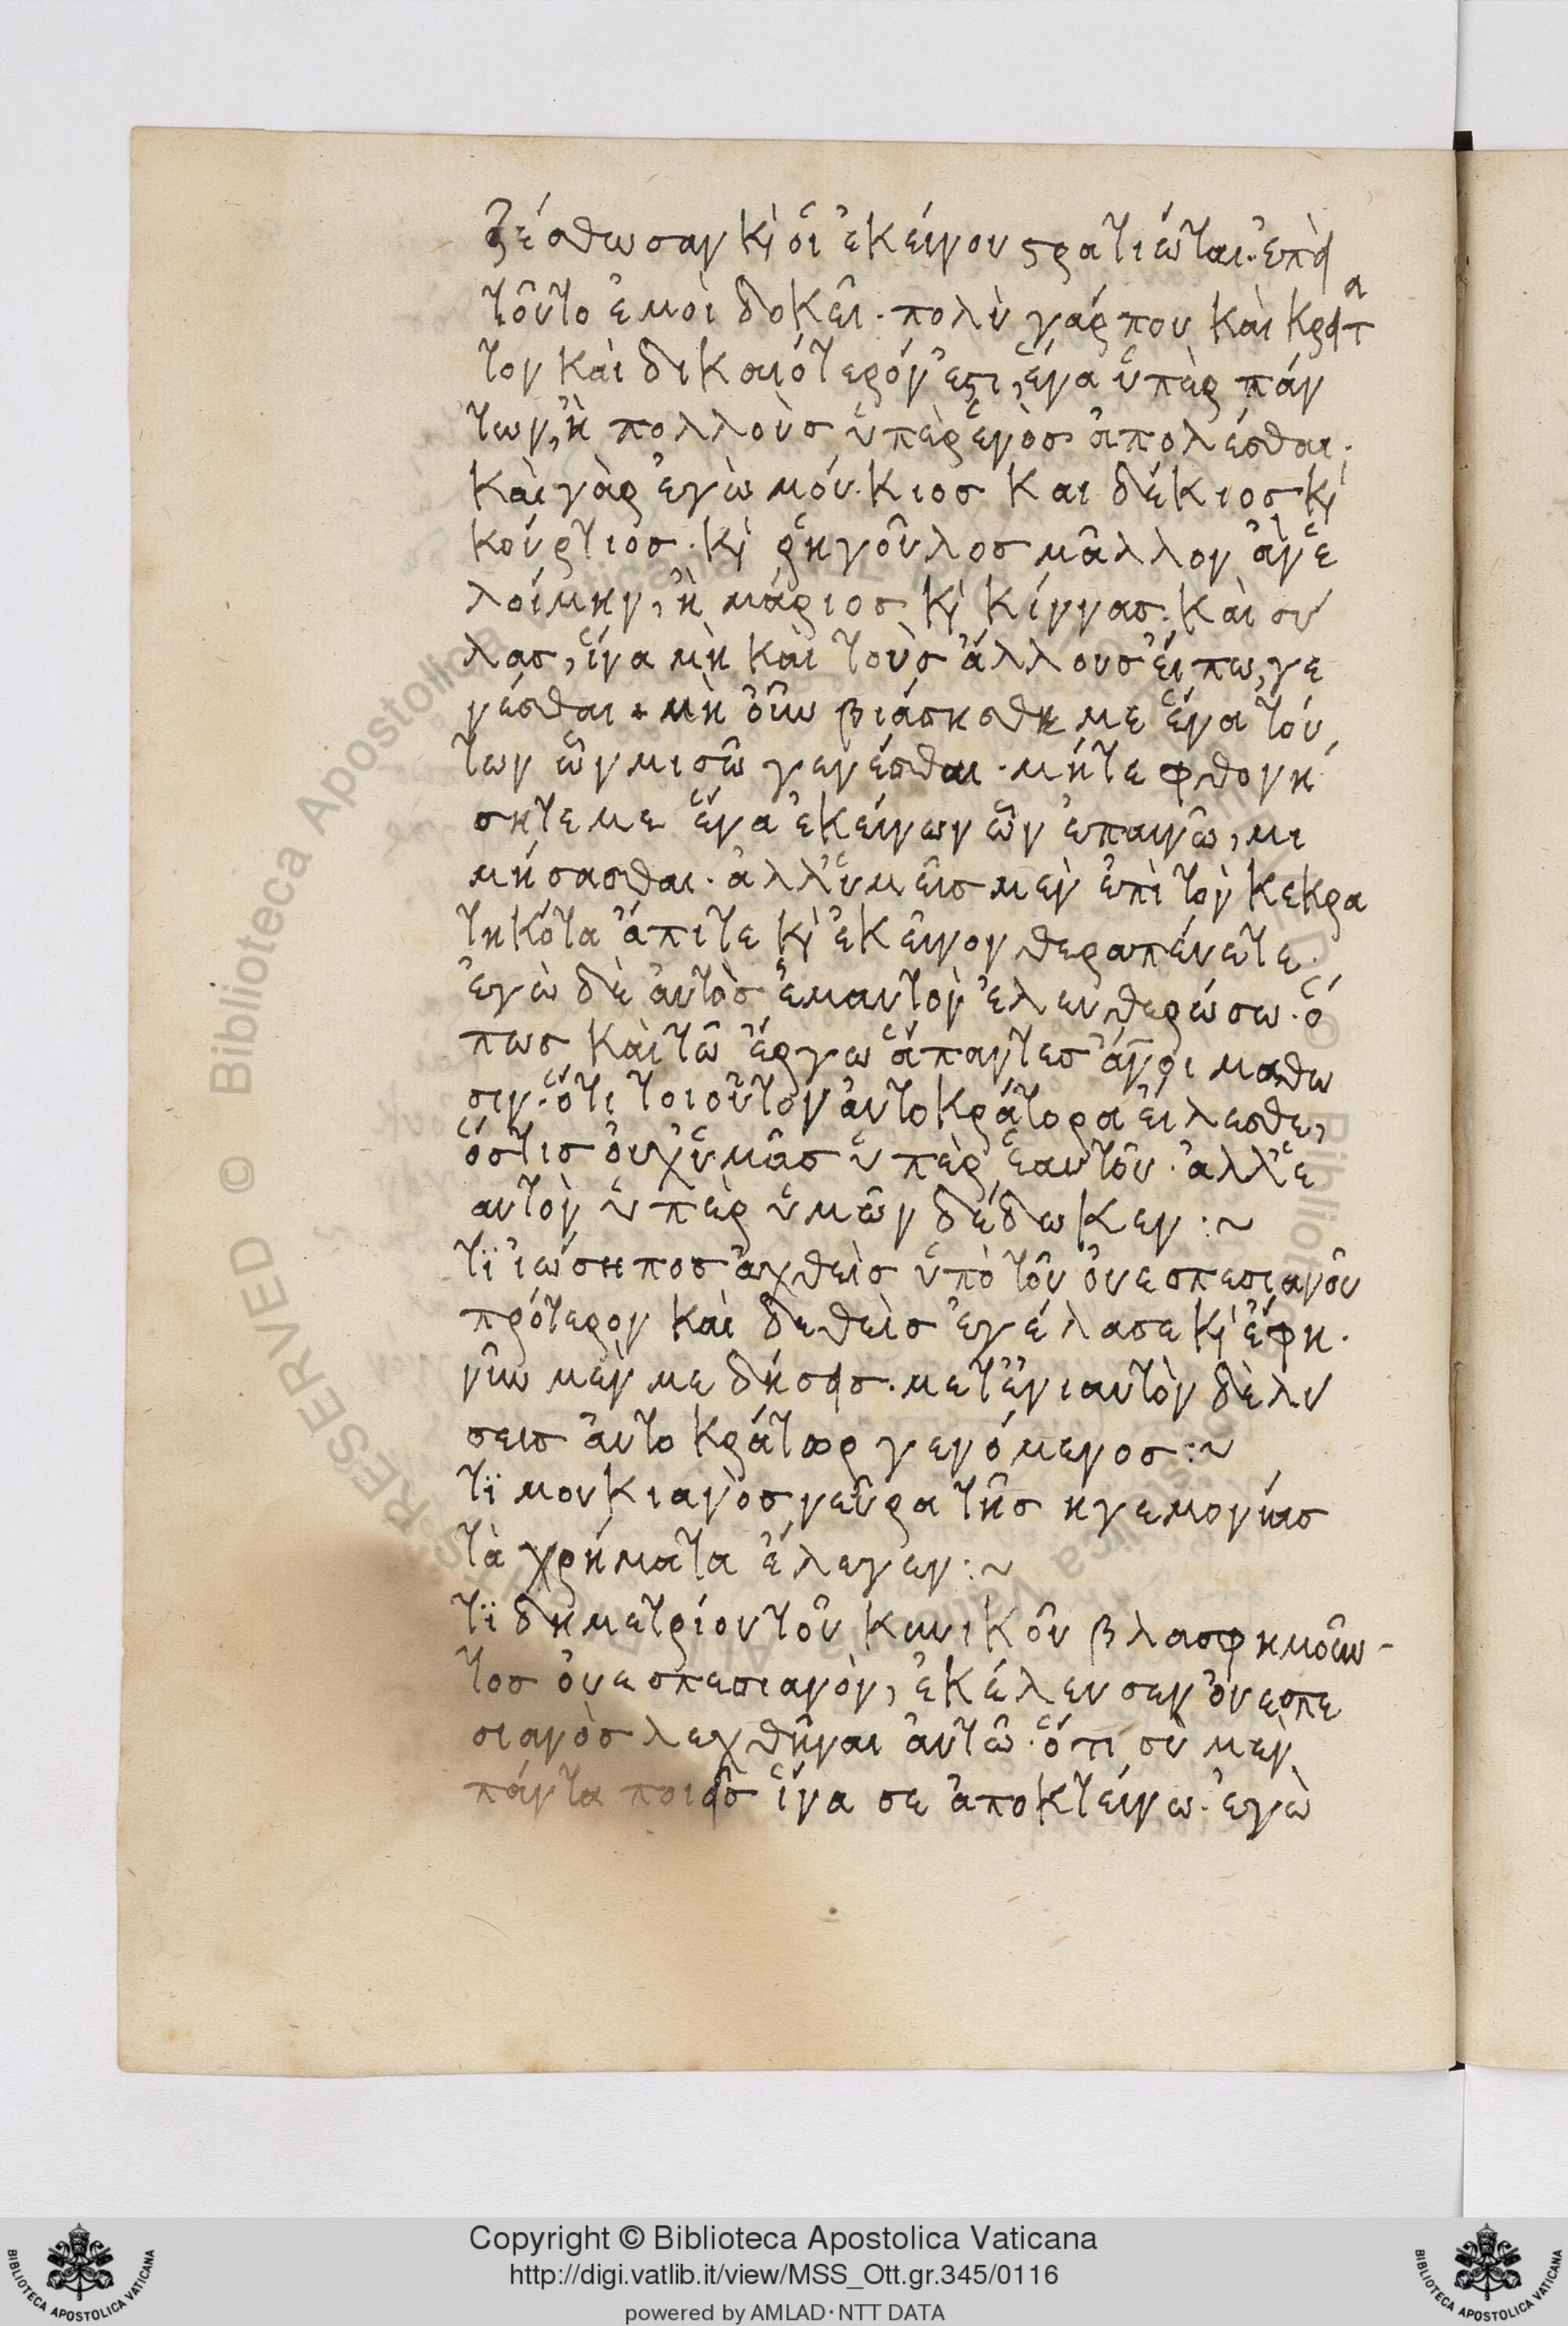 ζέσθωσαν κὶ ὁι ἐκείνου στρατιῶται. ἐπεὶ
τοῦτο ἐμοὶ δοκεῖ. πολὺ γάρ που καὶ κρεῖτ
τον καὶ δικαιότερόν ἐστι, ἕνα ὑπὲρ πάν
των, ἢ πολλοὺσ ὑπὲρ ἑνὸσ ἀπολέσθαι.
καὶ γὰρ ἐγὼ μούκιοσ και δέκιοσ κὶ
κούρτιοσ. κὶ ῥηγοῦλοσ μᾶλλον ἂν ἑ
λοίμην, ἢ μάριοσ κὶ κίννασ. καὶ σύ
λασ, ἵνα μὴ καὶ τοὺσ ἄλλουσ εἴπω, γε
νέσθαι. μὴ οὖν βιάσησθη με ἕνα τού
των ὧν μισῶ γενέσθαι. μήτε φθονή
σητε με ἕνα ἐκείνων ὧν ἐπαινῶ, μι
μήσασθαι. ἀλλ' ὑμεῖσ μὲν ἐπὶ τὸν κεκρα
τηκότα ἄπιτε κὶ ἐκεῖνον θεραπέυετε.
ἐγὼ δὲ ἀυτὸσ ἐμαυτὸν ἐλευθερώσω. ὅ
πωσ καὶ τῶ ἔργω ἅπαντεσ ἄνοι μάθω
σιν. ὅτι τοιοῦτον ἀυτοκράτορα εἵλεσθε,
ὅστισ ὀυχ' ὑμᾶσ ὑπὲρ ἑαυτοῦ. ἀλλ' ἑ
αυτὸν ὑπὲρ ὑμῶν δέδωκεν :~
τϊ ἰώσηποσ ἀχθεὶσ ὑπὸ τοῦ ὀυεσπεσιανοῦ
πρότερον καὶ δεθεὶσ ἐγέλασε κὶ ἔφη.
νῦν μὲν με δήσεισ. μετ' ἐνιαυτὸν δὲ λύ
σεισ ἀυτοκράτωρ γενόμενοσ :~
τϊ μουκιανὸσ νεῦρα τῆσ ηγεμονίασ
τὰ χρήματα ἔλεγεν :~
τϊ δημετρίου τοῦ κυνικοῦ βλασφημοῦν-
τοσ ὀυεσπεσιανὸν, ἐκέλευσεν ὀυεσπε
σιανὸσ λεχθῆναι ἀυτῶ. ὅτι σὺ μὲν
πάντα ποιεῖσ ἵνα σε ἀποκτείνω. ἐγὼ
Copyright © Biblioteca Apostolica Vaticana
http://digi.vatlib.it/view/MSS_Ott.gr.345/0116
powered by AMLAD·NTT DATA